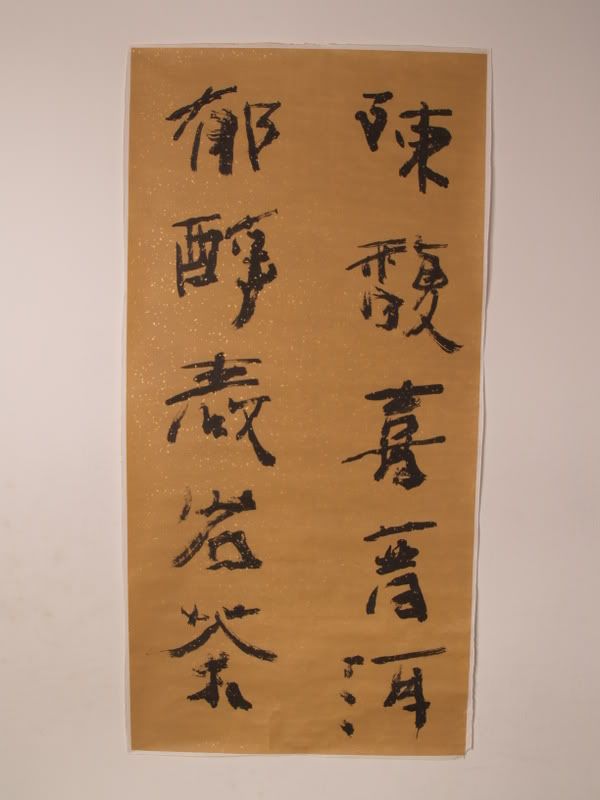 陳馥喜普洱
郁醇岩茶